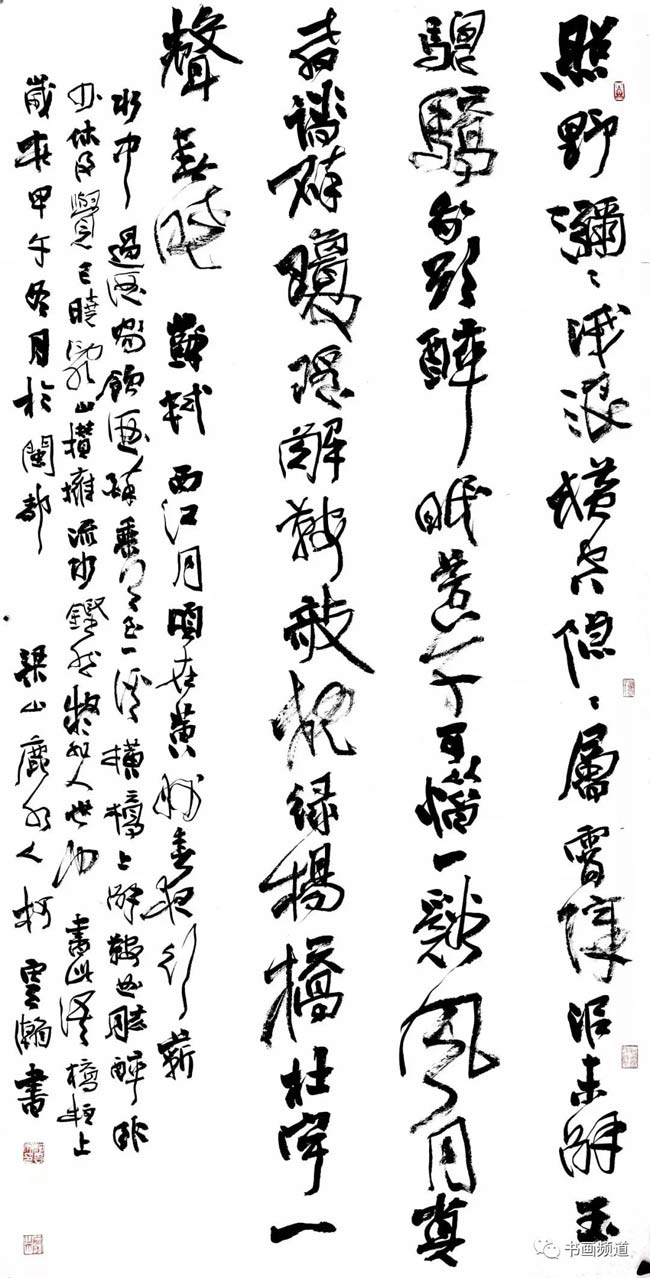 照野瀰〻淺浪橫空隱〻層霄障泥未解玉
驄驕我欲醉眠芳草可惜一谿風月莫
教踏碎瓊瑤解鞍敧枕綠楊橋杜宇一
聲春曉 蘇軾 西江月 頃在黃州春夜行蘄
水中過酒家飲酒醉乘月至一溪橋上解鞍曲肱醉卧
少休及覺已曉亂山攢擁流水鏗然疑非人世也 書此語橋柱上
歲在甲午冬月於閩都 梁山鹿水人柯雲瀚書
书画频道